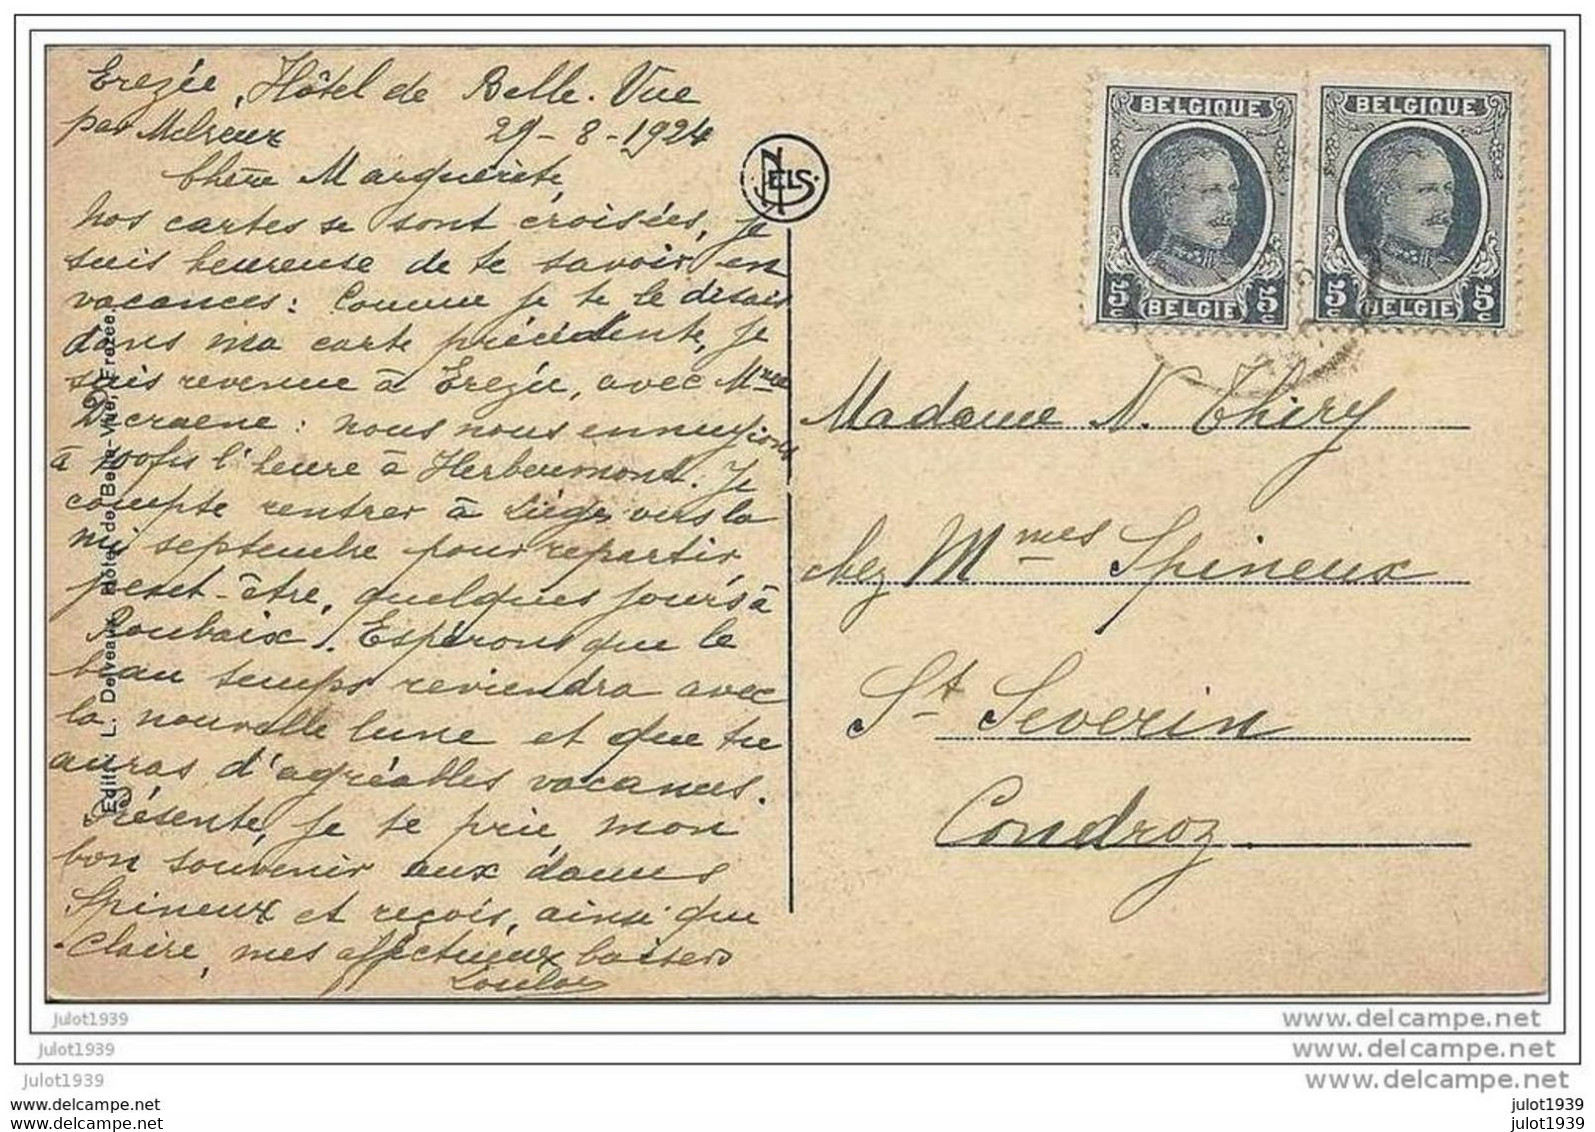 Erezée, Hôtel de Belle-Vue
par Melreux 29-8-1924
Chère Marguerite,
Nos cartes se sont croisées, je
suis heureuse de te savoir en
vacances: Comme je te le disais
dans ma carte précédente, je
suis revenue à Erezée, avec
Decraene: nous nous ennuyions
à 100 frs l'heure à Herbeumont. Je
compte rentrer à Liège vers la
mi septembre pour repartir
peut-être, quelques jours à
Roubaix. Espérons que le
beau temps reviendra avec
la nouvelle lune et que tu
auras d'agréables vacances.
Présente, je te prie, mon
bon souvenir aux dames
Spineux et reçois, ainsi que
Claire, mes affectueux baisers
Edit. L. Delveaux, Hôtel de Belle-Vue, Erezée.
NELS
BELGIQUE
5c BELGIE 5c
BELGIQUE
5c BELGIE 5c
Madame N. Thiry
chez Mmes Spineux
St Severin
Condroz.
julot1939
julot1939
julot1939
julot1939
julot1939
www.delcampe.net
www.delcampe.net
www.delcampe.net
www.delcampe.net
www.delcampe.net
julot1939
julot1939